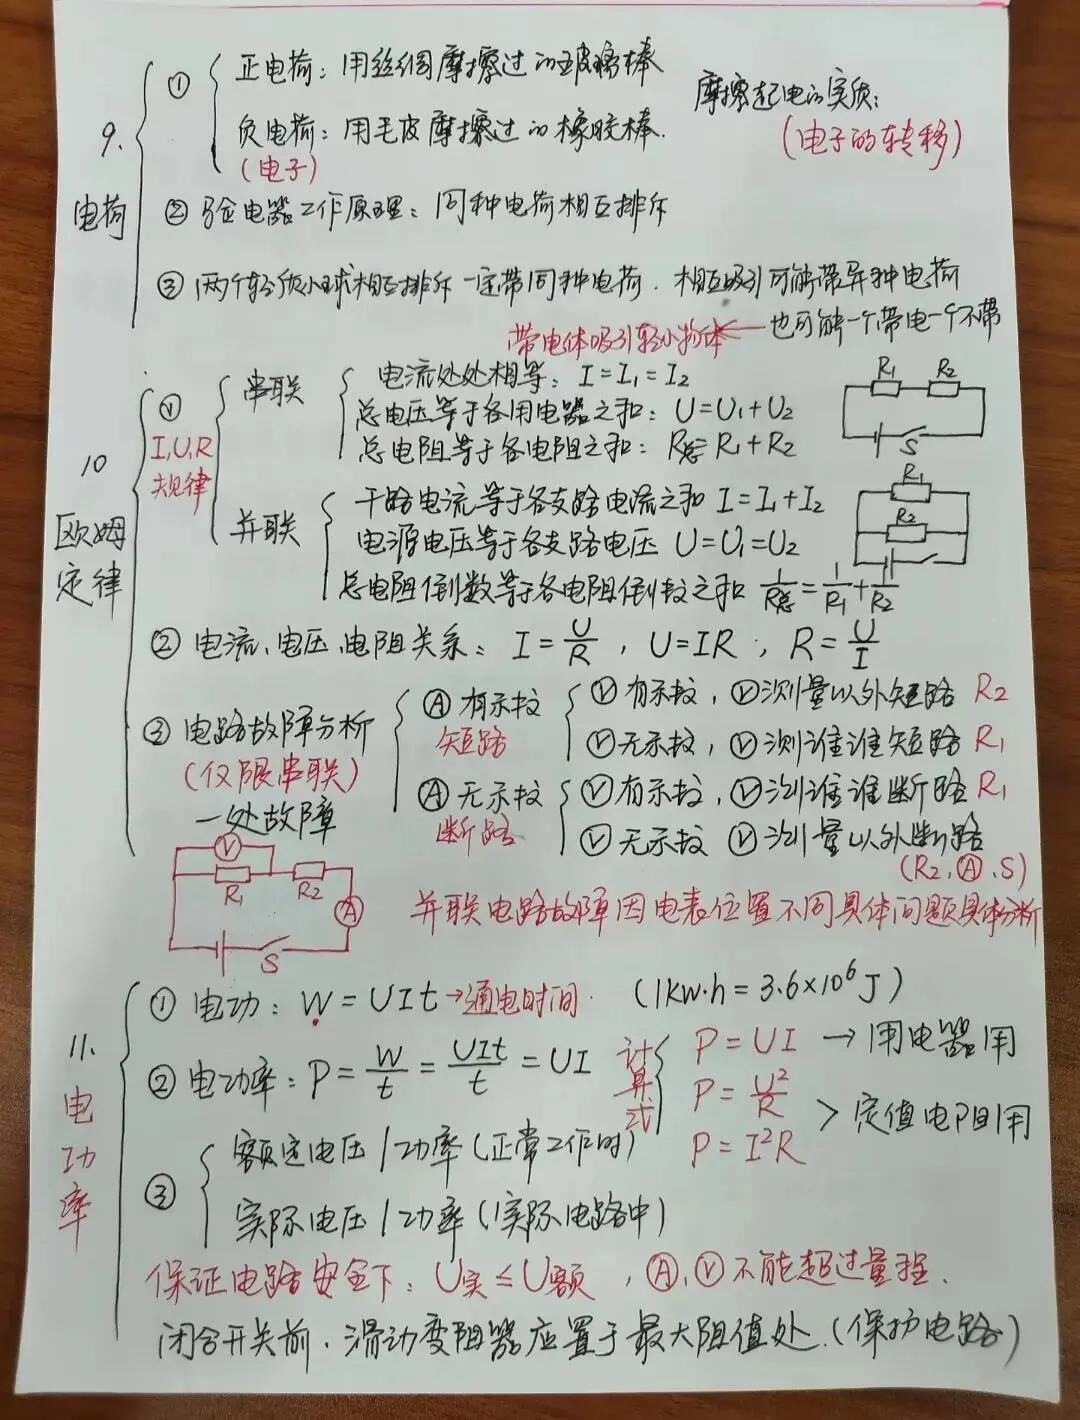 9.
电荷
① 正电荷：用丝绸摩擦过的玻璃棒
负电荷：用毛皮摩擦过的橡胶棒.
(电子)
摩擦起电的实质：
(电子的转移)
② 验电器工作原理：同种电荷相互排斥
③ 两个轻质小球相互排斥一定带同种电荷. 相互吸引可能带异种电荷
也可能一个带电一个不带
带电体吸引轻小物体
10
欧姆定律
① I,U,R
规律
串联
电流处处相等：I=I₁=I₂
总电压等于各用电器之和：U=U₁+U₂
总电阻等于各电阻之和：R总=R₁+R₂
R₁ R₂
S
并联
干路电流等于各支路电流之和 I=I₁+I₂
电源电压等于各支路电压 U=U₁=U₂
总电阻倒数等于各电阻倒数之和 1/R总=1/R₁+1/R₂
R₁
R₂
② 电流、电压、电阻关系：I=U/R，U=IR；R=U/I
③ 电路故障分析
(仅限串联)
一处故障
Ⓐ有示数
短路
Ⓥ有示数，Ⓥ测量以外短路 R₂
Ⓥ无示数，Ⓥ测谁谁短路 R₁
Ⓐ无示数
断路
Ⓥ有示数，Ⓥ测谁谁断路 R₁
Ⓥ无示数 Ⓥ测量以外断路
(R₂,Ⓐ,S)
V
R₁ R₂
A
S
并联电路故障因电表位置不同具体问题具体分析
11.
电功率
① 电功：W=UIt→通电时间. (1KW·h=3.6×10⁶J)
② 电功率：P=W/t=UIt/t=UI
计算式
P=UI → 用电器用
P=U²/R
P=I²R
> 定值电阻用
③ 额定电压/功率(正常工作时)
实际电压/功率(实际电路中)
保证电路安全下：U实≤U额，Ⓐ,Ⓥ不能超过量程.
闭合开关前.滑动变阻器应置于最大阻值处.(保护电路)